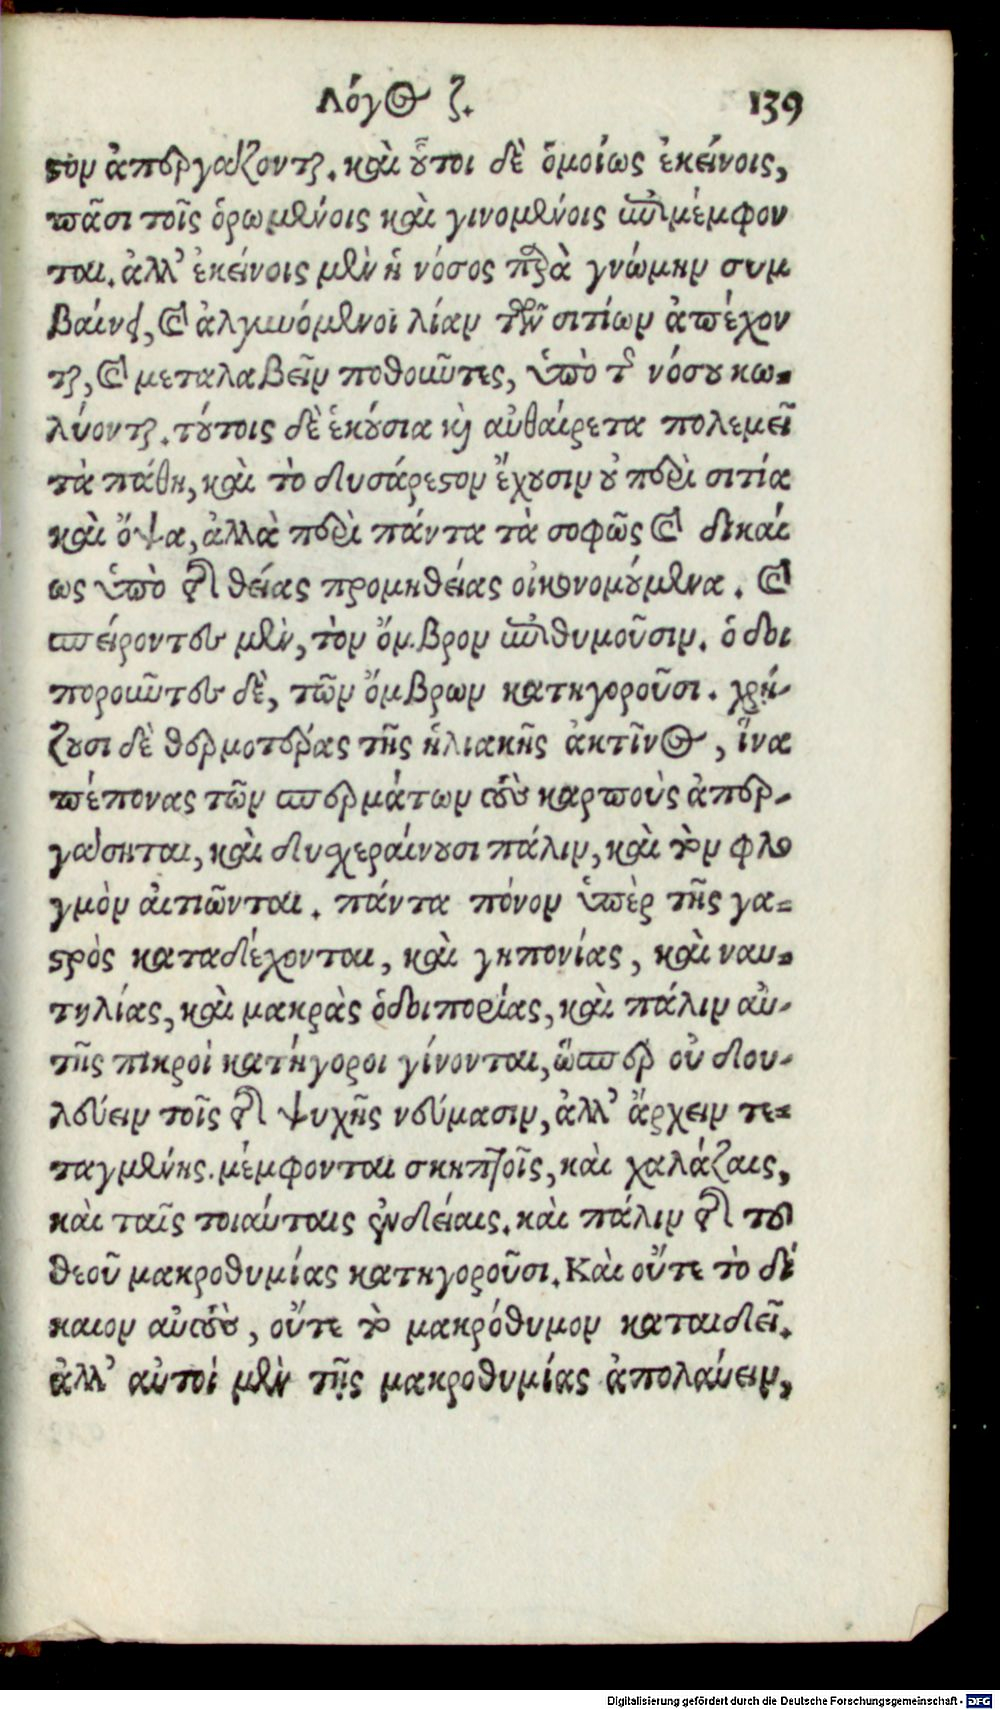 Λόγος ζ. 139
στον ἀπεργάζονται. καὶ οὗτοι δὲ ὁμοίως ἐκείνοις,
πᾶσι τοῖς ὁρωμένοις καὶ γινομένοις ἐπιμέμφον
ται. ἀλλ’ ἐκείνοις μὲν ἡ νόσος παρὰ γνώμην συμ
βαίνει, καὶ ἀλγυνόμενοι λίαν τῶν σιτίων ἀπέχον
ται, καὶ μεταλαβεῖν ποθοῦντες, ὑπὸ τῆς νόσου κω-
λύονται. τούτοις δὲ ἑκούσια καὶ αὐθαίρετα πολεμεῖ
τὰ πάθη, καὶ τὸ δυσάρεστον ἔχουσιν οὐ περὶ σιτία
καὶ ὄψα, ἀλλὰ περὶ πάντα τὰ σοφῶς καὶ δικαί
ως ὑπὸ τῆς θείας προμηθείας οἰκονομούμενα. καὶ
σπείροντες μὲν, τὸν ὄμβρον ἐπιθυμοῦσιν. ὁδοι
ποροῦντες δὲ, τῶν ὄμβρων κατηγοροῦσι. χρή-
ζουσι δὲ θερμοτέρας τῆς ἡλιακῆς ἀκτῖνος, ἵνα
πέπονας τῶν σπερμάτων τοὺς καρποὺς ἀπερ-
γάσηται, καὶ δυσχεραίνουσι πάλιν, καὶ τὸν φλο
γμὸν αἰτιῶνται. πάντα πόνον ὑπὲρ τῆς γα-
στρὸς καταδέχονται, καὶ γηπονίας, καὶ ναυ-
τηλίας, καὶ μακρὰς ὁδοιπορίας, καὶ πάλιν αὐ-
τῆς πικροὶ κατήγοροι γίνονται, ὥσπερ οὐ δου-
λεύειν τοῖς τῆς ψυχῆς νεύμασιν, ἀλλ’ ἄρχειν τε-
ταγμένης. μέμφονται σκηπτοῖς, καὶ χαλάζαις,
καὶ ταῖς τοιαύταις ἐνδείαις. καὶ πάλιν τῆς τοῦ
θεοῦ μακροθυμίας κατηγοροῦσι. Καὶ οὔτε τὸ δί
καιον αὐτοὺς, οὔτε τὸ μακρόθυμον καταιδεῖ.
ἀλλ’ αὐτοὶ μὲν τῆς μακροθυμίας ἀπολαύειν,
Digitalisierung gefördert durch die Deutsche Forschungsgemeinschaft - DFG